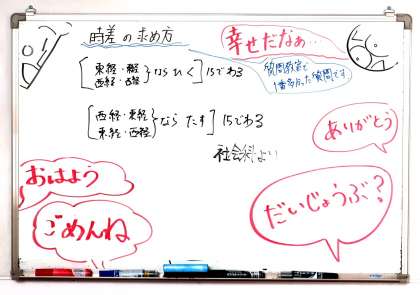 時差の求め方
幸せだなぁ…
東経・東経
西経・西経
ならひく
15でわる
質問教室で
1番多かった質問です
西経・東経
東経・西経
ならたす
15でわる
社会科より
ありがとう
おはよう
ごめんね
だいじょうぶ?